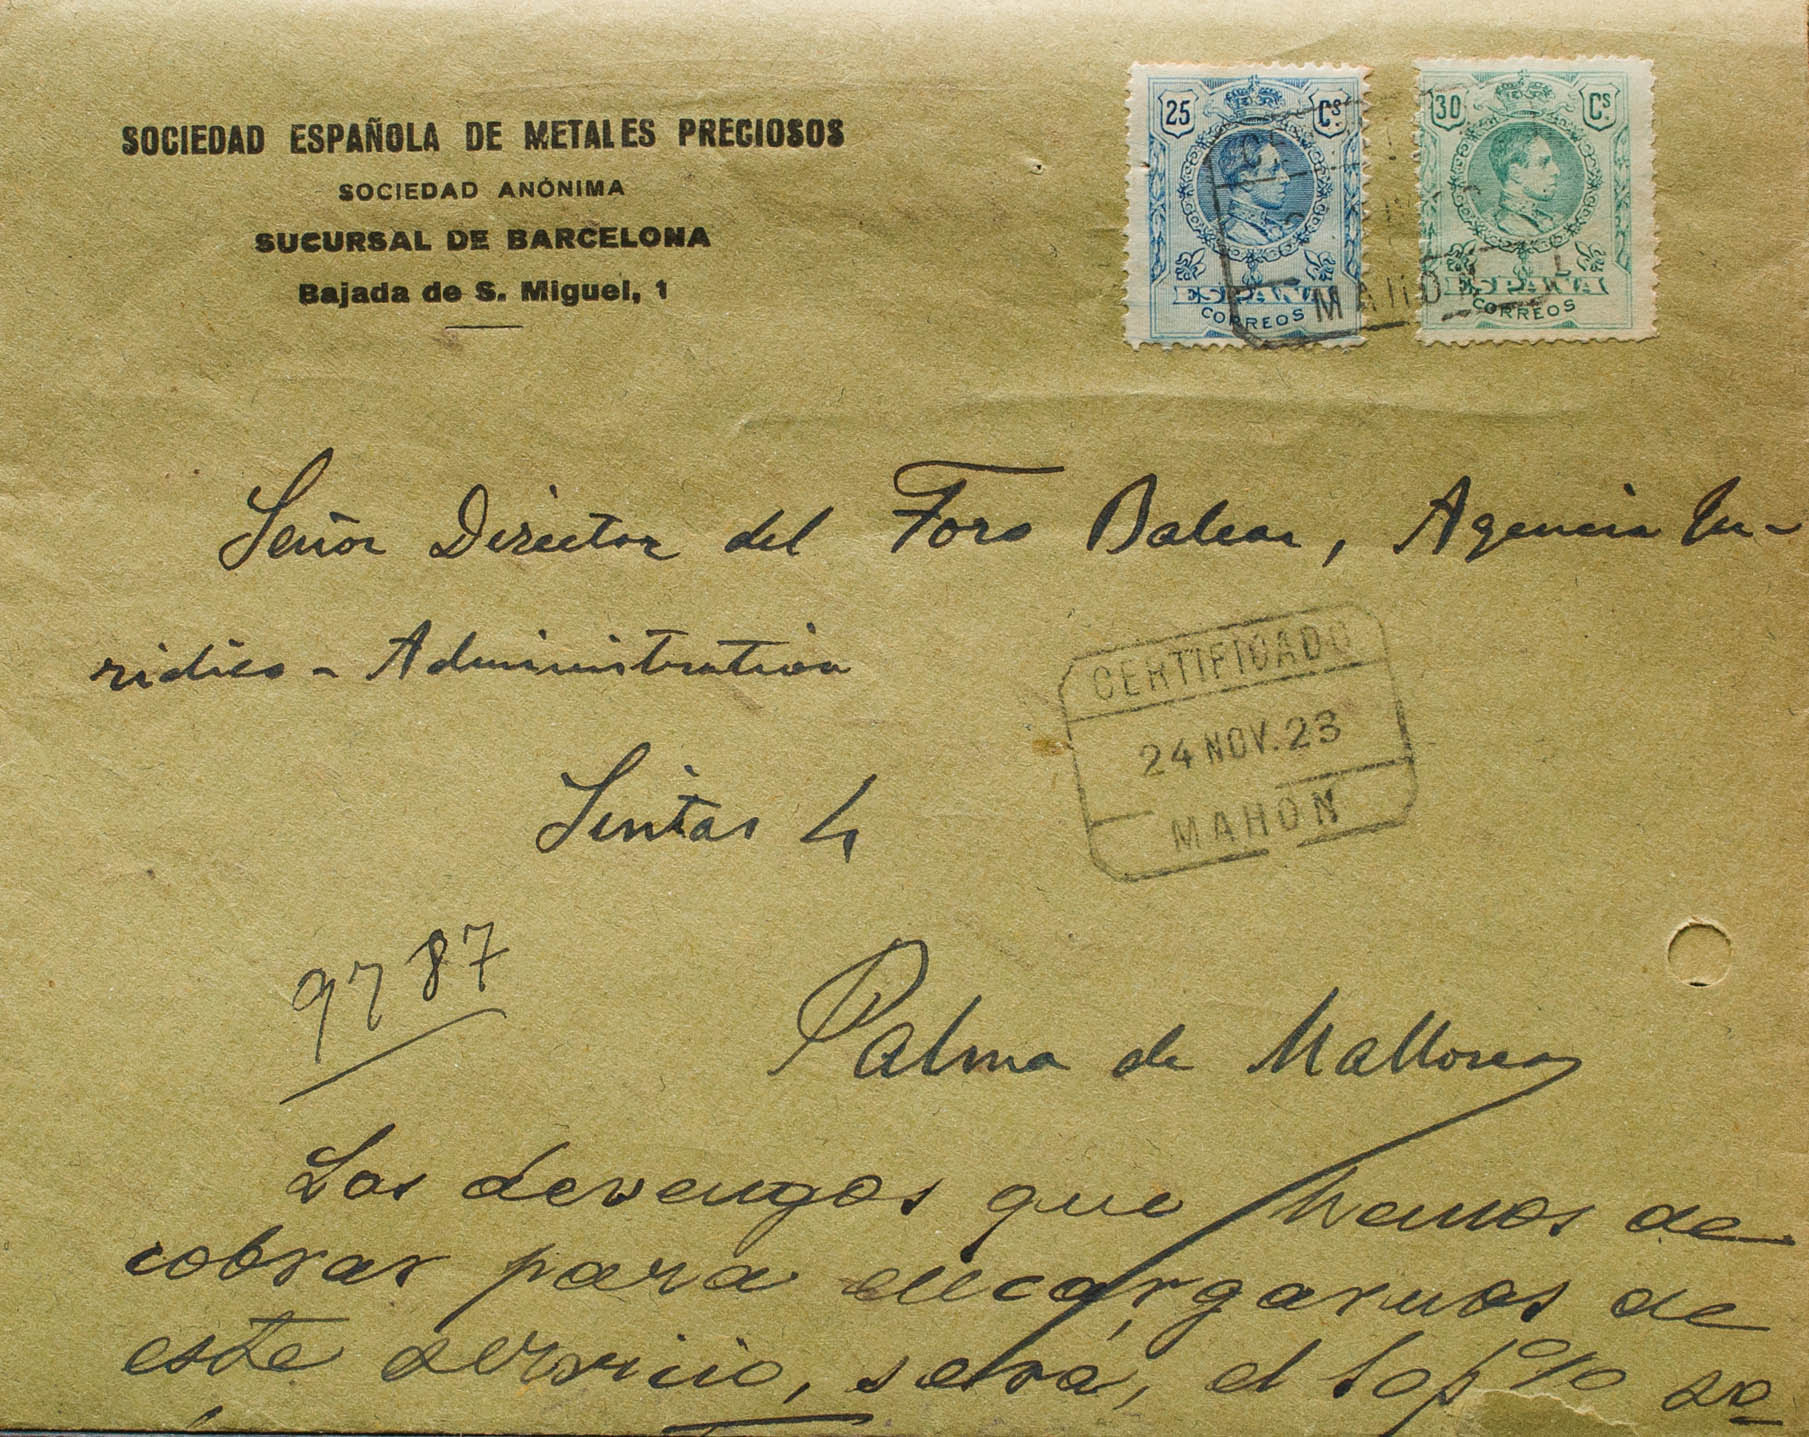 SOCIEDAD ESPAÑOLA DE METALES PRECIOSOS
SOCIEDAD ANÓNIMA
SUCURSAL DE BARCELONA
Bajada de S. Miguel, 1
25 Cs.
ESPAÑA
CORREOS
30 Cs.
ESPAÑA
CORREOS
MAHÓN
Señor Director del Foro Balear, Agencia Ju-
ridico-Administrativa
CERTIFICADO
24 NOV. 23
MAHÓN
Sintas 4
9787
Palma de Mallorca
Los devengos que hemos de
cobrar para encargarnos de
este servicio, será, el